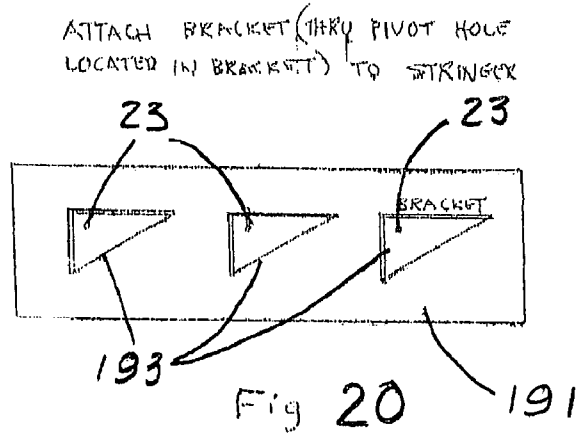 ATTACH BRACKET (THRU PIVOT HOLE
LOCATED IN BRACKETT) TO STRINGER
23 23
BRACKET
193 191
Fig 20